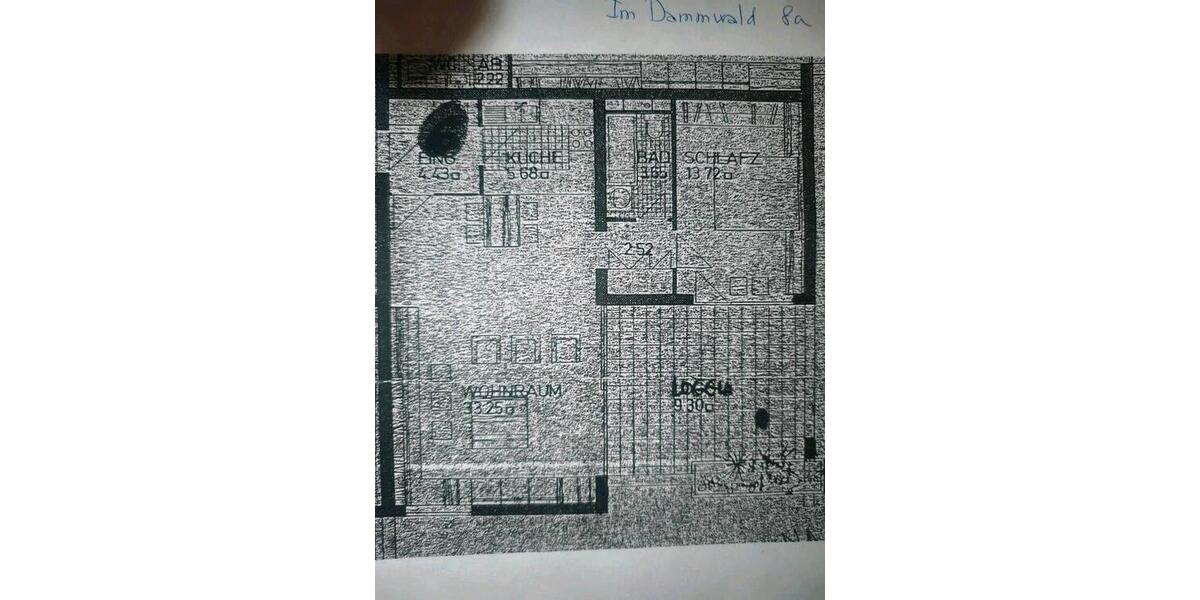 Im Dammwald 8a
2.22
EING
4.43□
KÜCHE
5.68□
BAD
3.65
SCHLAFZ
13.72□
2.52
WOHNRAUM
33.25□
LOGGIA
9.30□